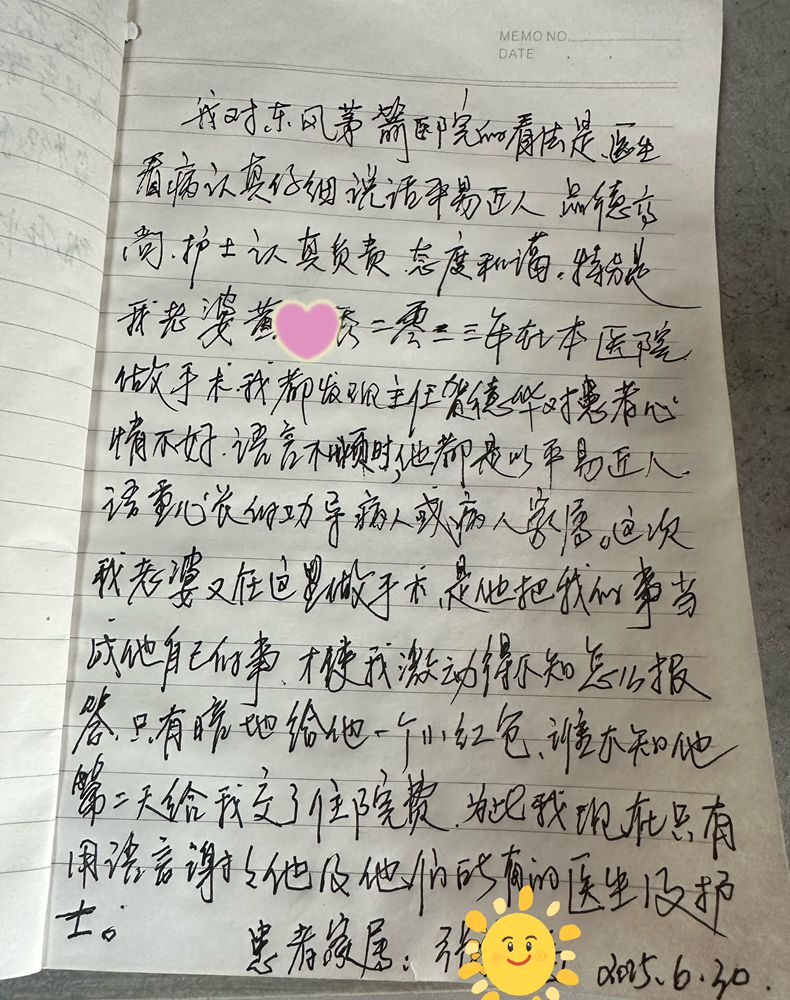 MEMO NO.
DATE . .
我对东风茅箭医院的看法是、医生
看病认真仔细、说话平易近人 品德高
尚、护士认真负责、态度和谐。特别是
我老婆黄 秀二零二三年在本医院
做手术、我都发现主任贺德华对患者心
情不好、语言不顺时,他都是以平易近人、
语重心长的功导病人或病人家属。这次
我老婆又在这里做手术、是他把我的事当
成他自己的事、才使我激动得不知怎么报
答、只有暗地给他一个小红包、谁不知他
第二天给我交了住院费、为此我现在只有
用语言谢谢他及他们所有的医生及护
士。
患者家属:张
2025.6.30.